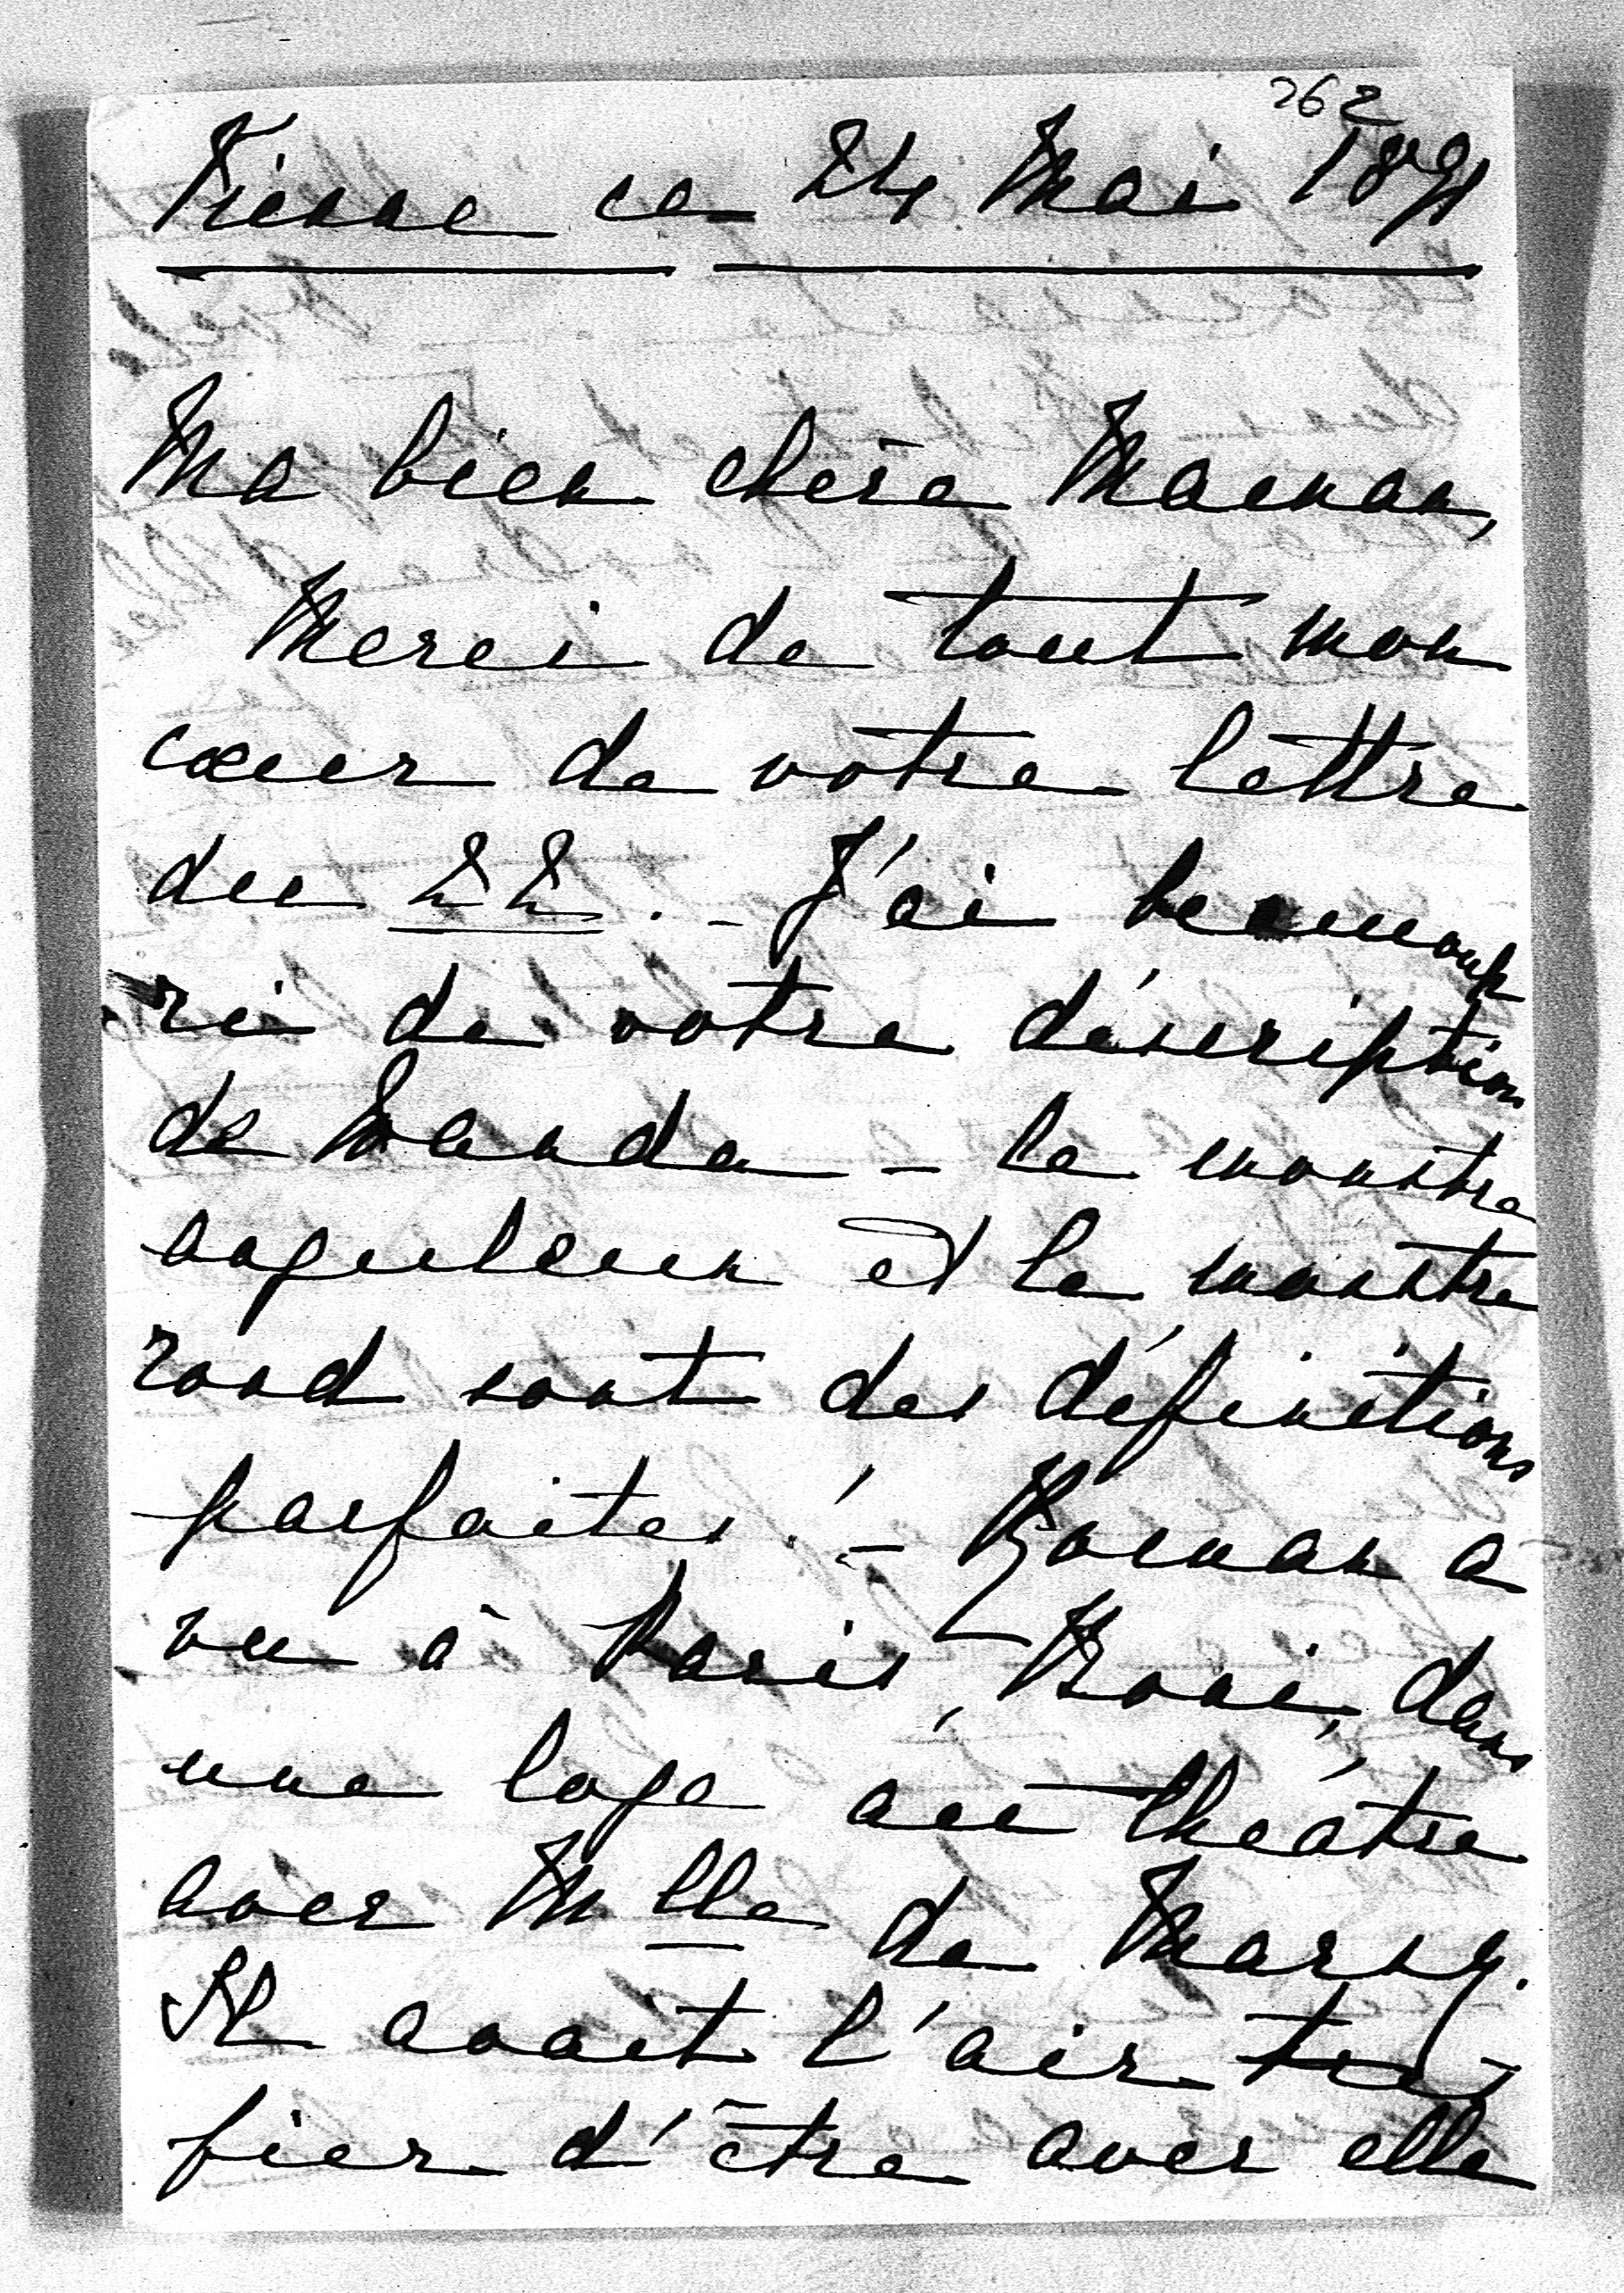 262
Vienne ce 24 Mai 1891
Ma bien chère Maman,
Merci de tout mon
cœur de votre lettre
du 22. - J'ai beaucoup
ri de votre déscription
de Wanda - le monstre
anguleux et le monstre
rond sont des définitions
parfaites! - Roman a
vu à Paris, Boni, dans
une loge au théâtre
avec Mlle de Marsy.
Il avait l'air très
fier d'être avec elle